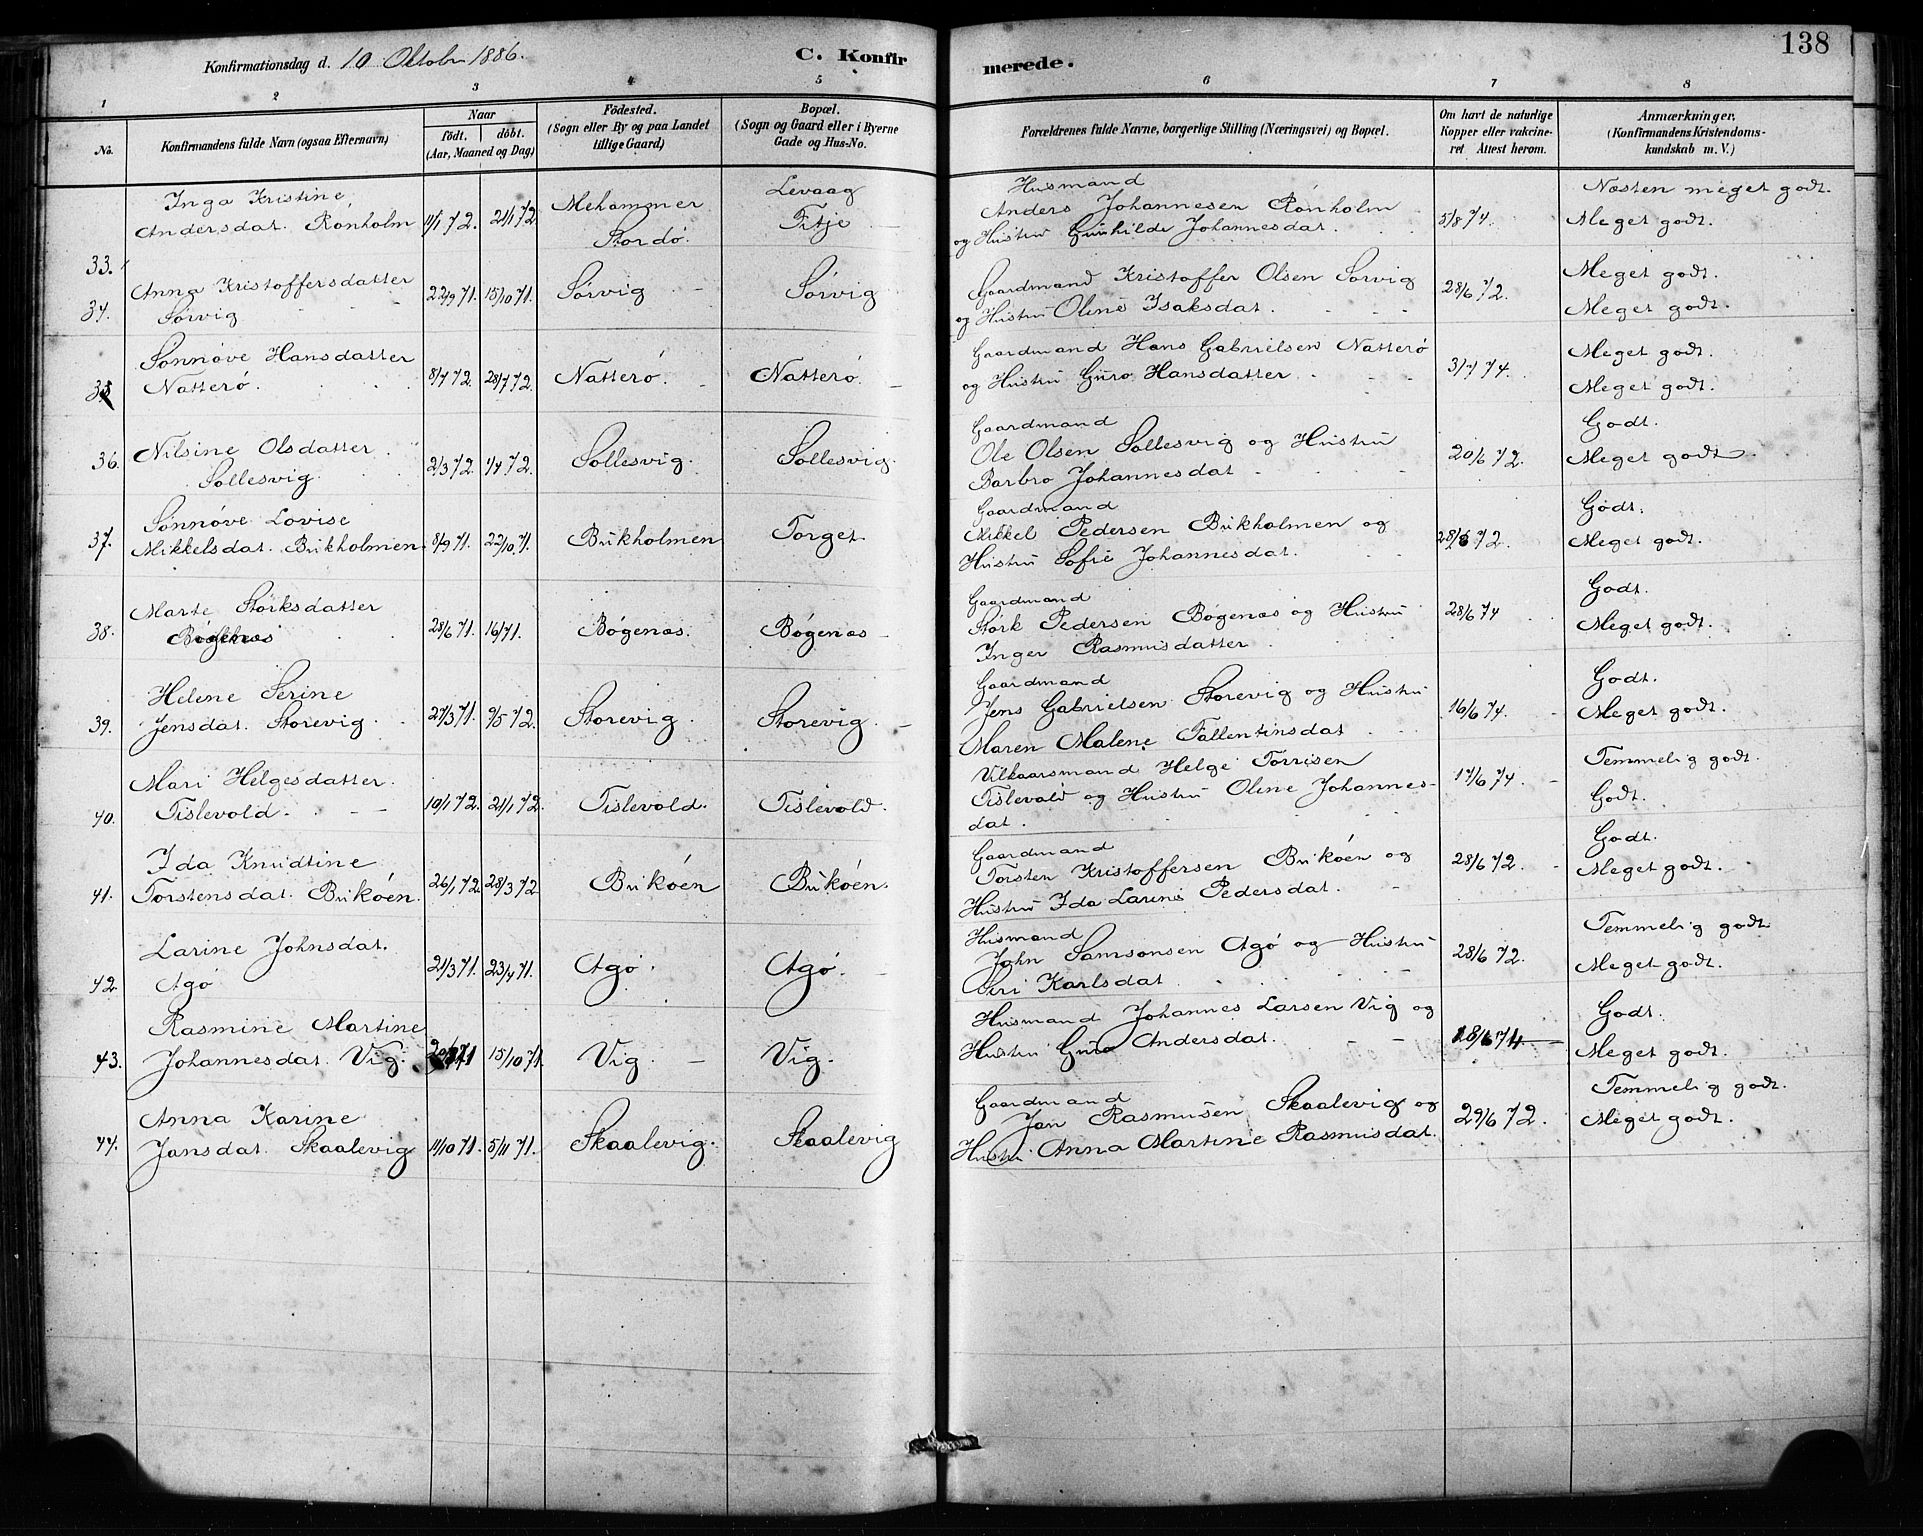 138
Konfirmationsdag d. 10 Oktobr 1886.
C. Konfirmerede.
1 2 3 4 5 6 7 8
No.
Konfirmandens fulde Navn (ogsaa Efternavn)
Naar
født. døbt.
(Aar, Maaned og Dag)
Födested.
(Sogn eller By og paa Landet
tillige Gaard)
Bopæl.
(Sogn og Gaard eller i Byerne
Gade og Hus-No.
Forældrenes fulde Navne, borgerlige Stilling (Næringsvei) og Bopæl.
Om havt de naturlige
Kopper eller vakcine-
ret. Attest herom.
Anmærkninger.
(Konfirmandens Kristendoms-
kundskab m. V.)
33.
Inga Kristine
Andersdat. Rönholm
11/1 72. 21/1 72.
Mehammer
Stordö.
Levaag
Fitje
Husmand
Anders Johannesen Rönholm
og Hustru Gunhilde Johannesdat.
5/8 74.
Næsten meget godt.
Meget godt.
34.
Anna Kristoffersdatter
Sørvig
22/9 71. 15/10 71.
Sørvig
Sørvig
Gaardmand Kristoffer Olsen Sørvig
og Hustru Oline Isaksdat.
28/6 72.
Meget godt.
Meget godt.
35
Sønnøve Hansdatter
Natterö.
8/7 72. 28/7 72.
Natterö.
Natterö.
Gaardmand Hans Gabrielsen Natterö
og Hustru Guro Hansdatter
3/7 74.
Meget godt.
Meget godt.
36.
Nilsine Olsdatter
Søllesvig.
2/3 72. 1/4 72.
Søllesvig.
Søllesvig.
Gaardmand
Ole Olsen Søllesvig og Hustru
Barbro Johannesdat
20/6 72.
Godt.
Meget godt.
37.
Sønnøve Lovise
Mikkelsdat. Bukholmen
8/9 71. 22/10 71.
Bukholmen
Torget
Gaardmand
Mikkel Pedersen Bukholmen og
Hustru Sofie Johannesdat.
28/6 72.
Godt.
Meget godt.
38.
Marte Størksdatter
Bøgenæs
28/6 71. 16/71.
Bøgenæs.
Bøgenæs
Gaardmand
Størk Pedersen Bøgenæs og Hustru
Inger Rasmusdatter
28/6 74
Godt.
Meget godt.
39.
Helene Serine
Jensdat. Storevig.
27/3 71. 9/5 72.
Storevig.
Storevig.
Gaardmand
Jens Gabrielsen Storevig og Hustru
Maren Malene Fallentinsdat
16/6 74.
Godt.
Meget godt.
40.
Mari Helgesdatter
Tislevold.
10/1 72. 21/1 72.
Tislevold.
Tislevold.
Vilkaarsmand Helge Torrisen
Tislevold og Hustru Oline Johannes-
dat.
17/6 74.
Temmelig godt.
Godt.
41.
Ida Knudtine
Torstensdat. Bukøen.
26/1 72. 28/3 72
Bukøen
Bukøen.
Gaardmand
Torsten Kristoffersen Bukøen og
Hustru Ida Larine Pedersdat.
28/6 72.
Godt.
Meget godt.
42.
Larine Johnsdat.
Agö
21/3 71. 23/4 71.
Agö.
Agö.
Husmand
John Samsonsen Agö og Hustru
Siri Karlsdat
28/6 72.
Temmelig godt
Meget godt.
43.
Rasmine Martine
Johannesdat. Vig.
15/10 71.
Vig.
Vig.
Husmand Johannes Larsen Vig og
Hustru Guro Andersdat.
18/6 74
Godt.
Meget godt.
44.
Anna Karine
Jansdat. Skaalevig
11/10 71. 5/11 71.
Skaalevig.
Skaalevig
Gaardmand
Jan Rasmusen Skaalevig og
Hustru Anna Martine Rasmusdat.
29/6 72.
Temmelig godt.
Meget godt.